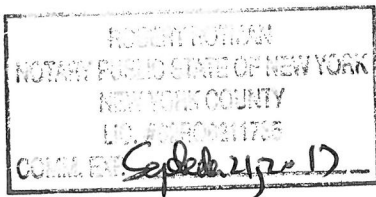 ROBERT
NOTARY PUBLIC STATE OF NEW YORK
NEW YORK COUNTY
LIC.
COMM. EXP. September 21, 2017